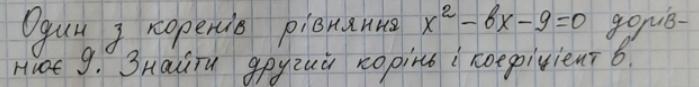 Один з коренів рівняння x² - bx - 9 = 0 дорів-
нює 9. Знайти другий корінь і коефіцієнт b.